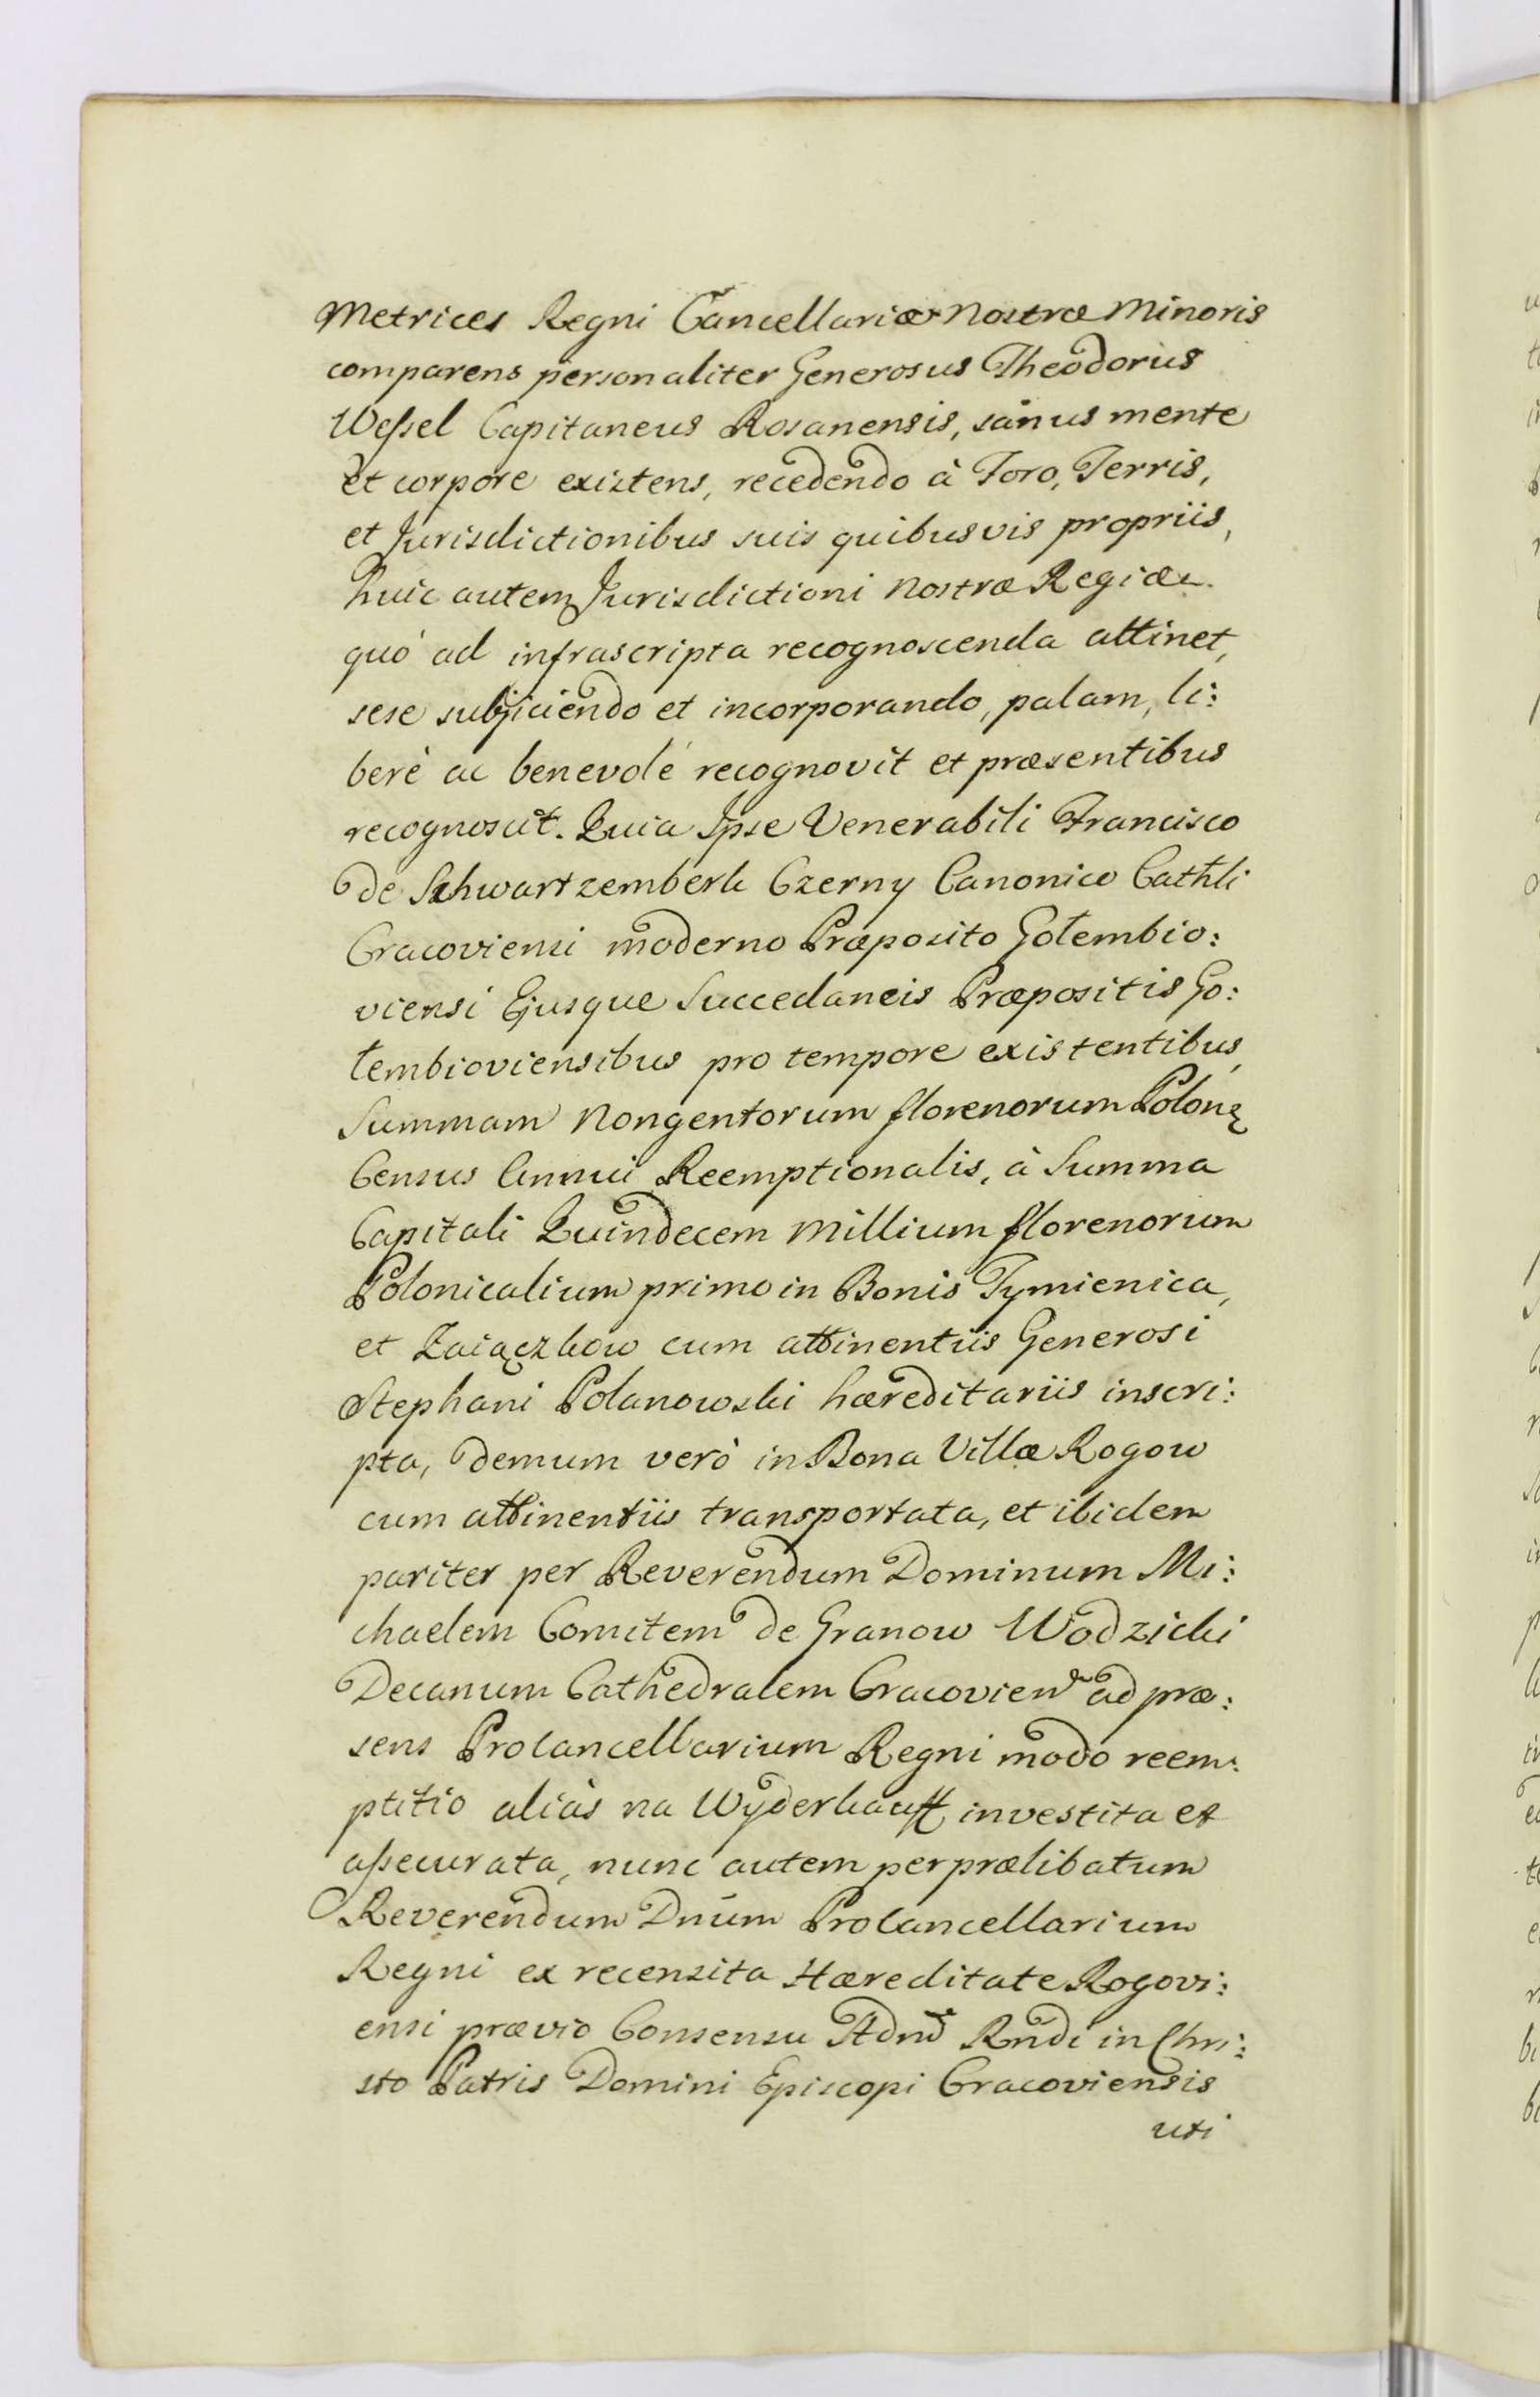 Metrices Regni Cancellariæ Nostræ Minoris
comparens personaliter Generosus Theodorus
Weſsel Capitaneus Rosanensis, sanus mente
et corpore existens, recedendo à Foro, Terris,
et Jurisdictionibus suis quibusvis propriis,
huic autem Jurisdictioni Nostræ Regiæ
quò ad infrascripta recognoscenda attinet,
sese subjiciendo et incorporando, palam, li:
berè ac benevolé recognovit et præsentibus
recognoscit. Quia Ipse Venerabili Francisco
de Schwartzemberk Czerny Canonico Cathli
Cracoviensi moderno Præposito Gołembio:
viensi Ejusque Succedaneis Præpositis Go:
łembioviensibus pro tempore existentibus,
Summam Nongentorum florenorum Polonę
Census Annui Reemptionalis, à Summa
Capitali Quindecem Millium florenorum
Polonicalium primo in Bonis Tymienica,
et Zaiączkow cum attinentiis Generosi
Stephani Polanowski hæreditariis inscri:
pta, demum verò in Bona Villæ Rogow
cum attinentiis transportata, et ibidem
pariter per Reverendum Dominum Mi:
chaelem Comitem de Granow Wodzicki
Decanum Cathedralem Cracovien ad præ:
sens Procancellarium Regni modo reem:
ptitio aliàs na Wyderkauff investita et
aſsecurata, nunc autem per prælibatum
Reverendum Dnum Procancellarium
Regni ex recensita Hæreditate Rogovi:
ensi prævio Consensu Rndi in Chri:
sto Patris Domini Episcopi Cracoviensis
uti